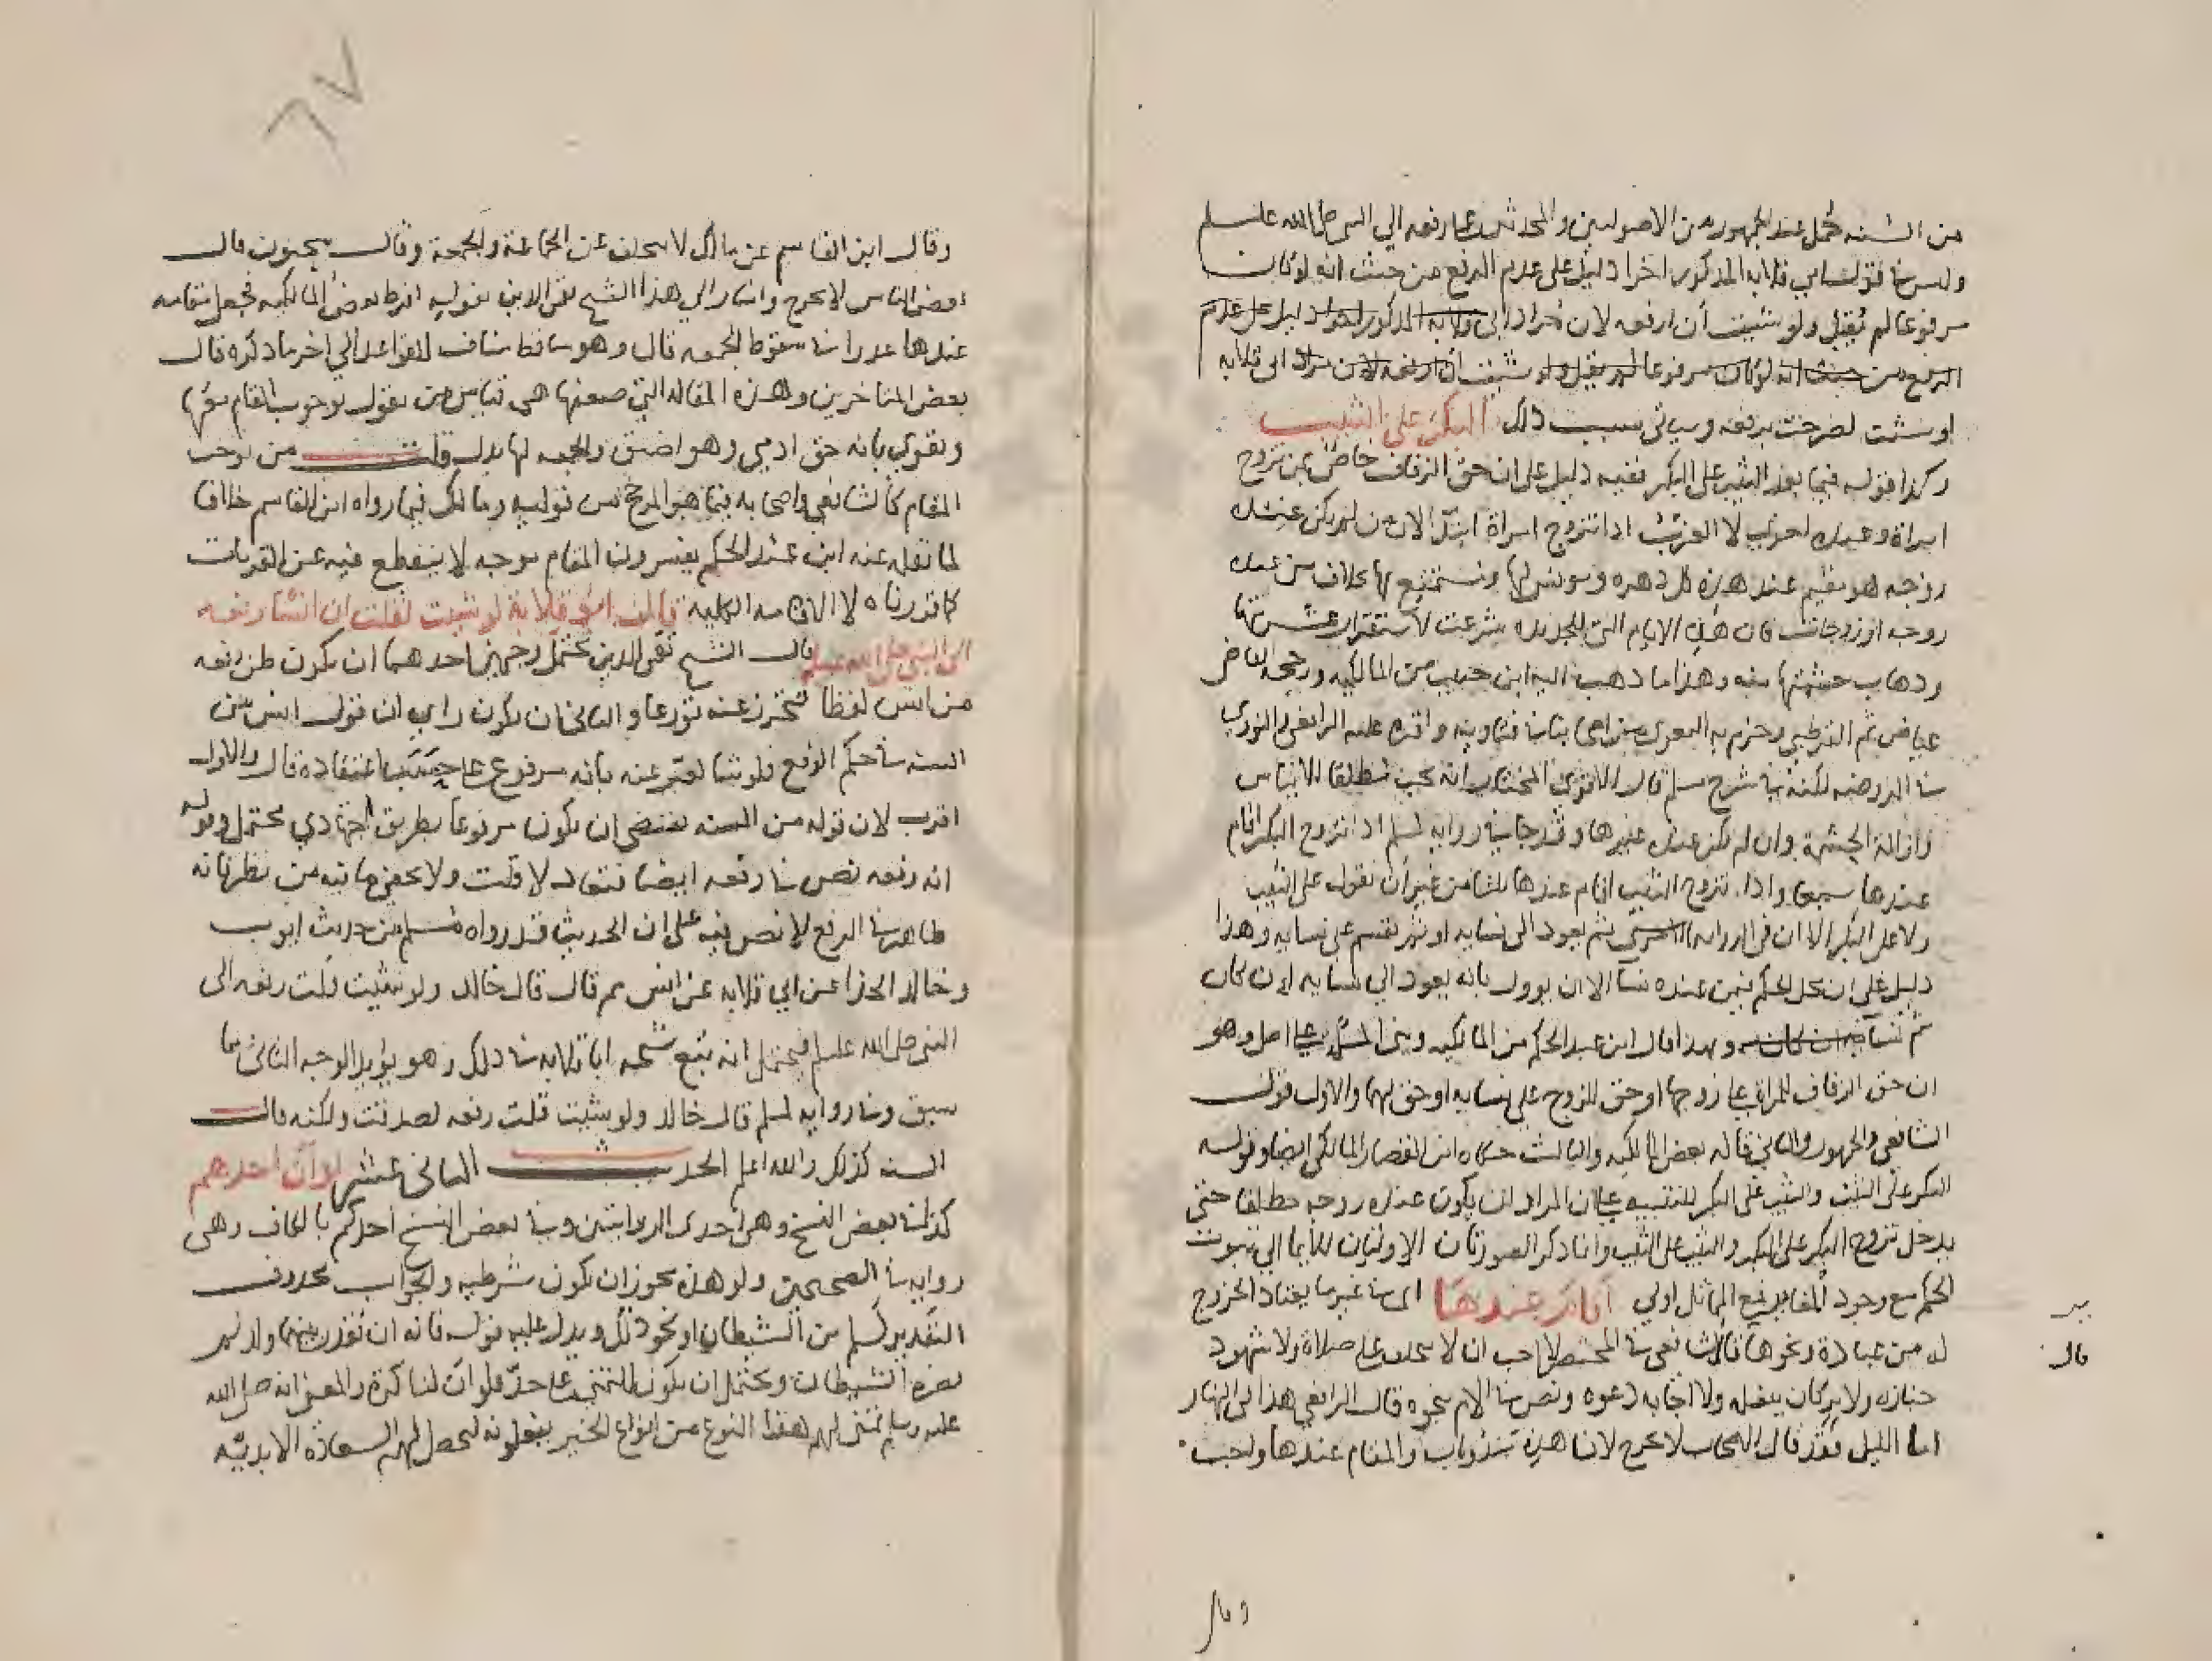 من السنه حمل عند الجمهور من الاصوليين والمحدثين على رفعه الي النبي صلى الله عليه وسلم
وليس في قول ابي قلابه المذكور اخرا دليل على عدم الرفع من حيث انه لو كان
مرفوعا لم يقل ولو شيت ان ارفعه لان مراد ابي قلابه المذكور اخرا دليل على عدم
الرفع من حيث انه لو كان مرفوعا لم يقل ولو شيت ان ارفعه لان مراد ابي قلابه
او شئت لصرحت برفعه وسياتي سبب ذلك البكر على الثيب
وكذا قوله فيما بعد الثيب على البكر ففيه دليل على ان حق الزفاف خاص بمن تزوج
امراة وعنده اخرى لا العزب اذا تزوج امراة ابتدا لان من لم يكن عنده
زوجه هو مقيم عند هذه كل دهره ومونس لها ومستمتع بها بخلاف من عنده
زوجه او زوجات فان هذه الايام التي للجديده شرعت لاستقرار عشرتها
وذهاب حشمتها منه وهذا ما ذهب اليه ابن حبيب من المالكيه ورجحه القاضي
عياض ثم القرطبي وجزم به البغوي من اصحابنا في فتاويه واقره عليه الرافعي والنووي
في الروضه لكنه في شرح مسلم قال الاقوى المختار انه يجب مطلقا لايناس
وازالة الحشمة وان لم يكن عنده غيرها وقد جا في روايه لمسلم اذا تزوج البكر اقام
عندها سبعا واذا تزوج الثيب اقام عندها ثلثا من غير ان يقول على الثيب
ولا على البكر الا ان في الروايه الاخرى ثم يعود الى نسايه او ثم يقسم على نسايه وهذا
دليل على ان محل الحكم فيمن عنده نسا الا ان يوول بانه يعود الي نسايه ان كان
ثم نسا ان كان وبهذا قال ابن عبد الحكم من المالكيه وبنى المسئله على اصل وهو
ان حق الزفاف للمراة على زوجها او حق للزوج على نسايه او حق لهما والاول قول
الشافعي والجمهور والثاني قاله بعض المالكيه والثالث حكاه ابن القصار المالكي ايضا وقوله
البكر على الثيب والثيب على البكر للتنبيه على ان المراد ان يكون عنده زوجه مطلقا حتى
يدخل تزوج البكر على البكر والثيب على الثيب وانما ذكر الصورتان الاوليان للايما الي ثبوت
الحكم مع وجود المقابل فمع المماثل اولي اقام عندها اي في غير ما يعتاد الخروج
له من عبادة ونحوها قال الشافعي في المختصر لا احب ان لا يتخلف عن صلاة ولا شهود
قال
جنازه ولا بر كان يفعله ولا اجابه دعوه ونص في الام نحوه قال الرافعي هذا في النهار
اما الليل فقد قال الاصحاب لا يخرج لان هذه مندوبات والمقام عندها واجب
وقال
٦٧
وقال ابن القاسم عن مالك لا يتخلف عن الجماعة والجمعة وقال سحنون قال
بعض الناس لا يخرج واشار الي هذا الشيخ تقي الدين بقوله افرط بعض المالكيه فجعل مقامه
عندها عذرا في سقوط الجمعه قال وهو ساقط مناف للقواعد الي اخر ما ذكره قال
بعض المتاخرين وهذه المقاله التي ضعفها هي قياس من يقول بوجوب المقام عندها
ويقول بانه حق ادمي وهو اضيق والجمعه لها بدل قلت من يوجب
المقام كالشافعي واصحابه فيما هو المرجح من قوليه ومالك فيما رواه ابن القاسم خلافا
لما نقله عنه ابن عبد الحكم يفسرون المقام بوجه لا ينقطع فيه عن القربات
كما قررناه لا الاقامه الكليه قال ابو قلابة لو شيت لقلت ان انسا رفعه
الى النبي صلى الله عليه وسلم قال الشيخ تقي الدين يحتمل وجهين احدهما ان يكون ظن رفعه
من انس لفظا فتحرز عنه تورعا والثاني ان يكون راي ان قول انس من
السنه في حكم الرفع فلو شا لعبر عنه بانه مرفوع على حسب اعتقاده قال والاول
اقرب لان قوله من السنه يقتضي ان يكون مرفوعا بطريق اجتهادي محتمل وقوله
انه رفعه نص في رفعه ايضا فتعاد لا قلت ولا يخفى ما فيه من نظر فانه
ظاهر في الرفع لا نص فيه على ان الحديث قد رواه مسلم من حديث ايوب
وخالد الحذا عن ابي قلابه عن انس ثم قال قال خالد ولو شيت قلت رفعه الى
النبي صلى الله عليه وسلم فيحتمل انه تبع شيخه ابا قلابه في ذلك وهو يؤيد الوجه الثاني كما
سبق وفي روايه لمسلم قال خالد ولو شيت قلت رفعه لصدقت ولكنه قال
السنه كذلك والله اعلم الحديث الثاني عشر لو ان احدهم
كذا في بعض النسخ وهي احدى الروايتين وفي بعض النسخ احدكم بالكاف وهي
روايه في الصحيحين ولو هذه يجوز ان يكون شرطيه والجواب محذوف
التقدير لسلم من الشيطان او نحو ذلك ويدل عليه قوله فانه ان يقدر بينهما ولد لم
يضره الشيطان ويحتمل ان يكون للتمني على حد فلو ان لنا كرة والمعنى انه صلى الله
عليه وسلم تمنى لهم هذا النوع من انواع الخير يفعلونه لتحصل لهم السعادة الابديه